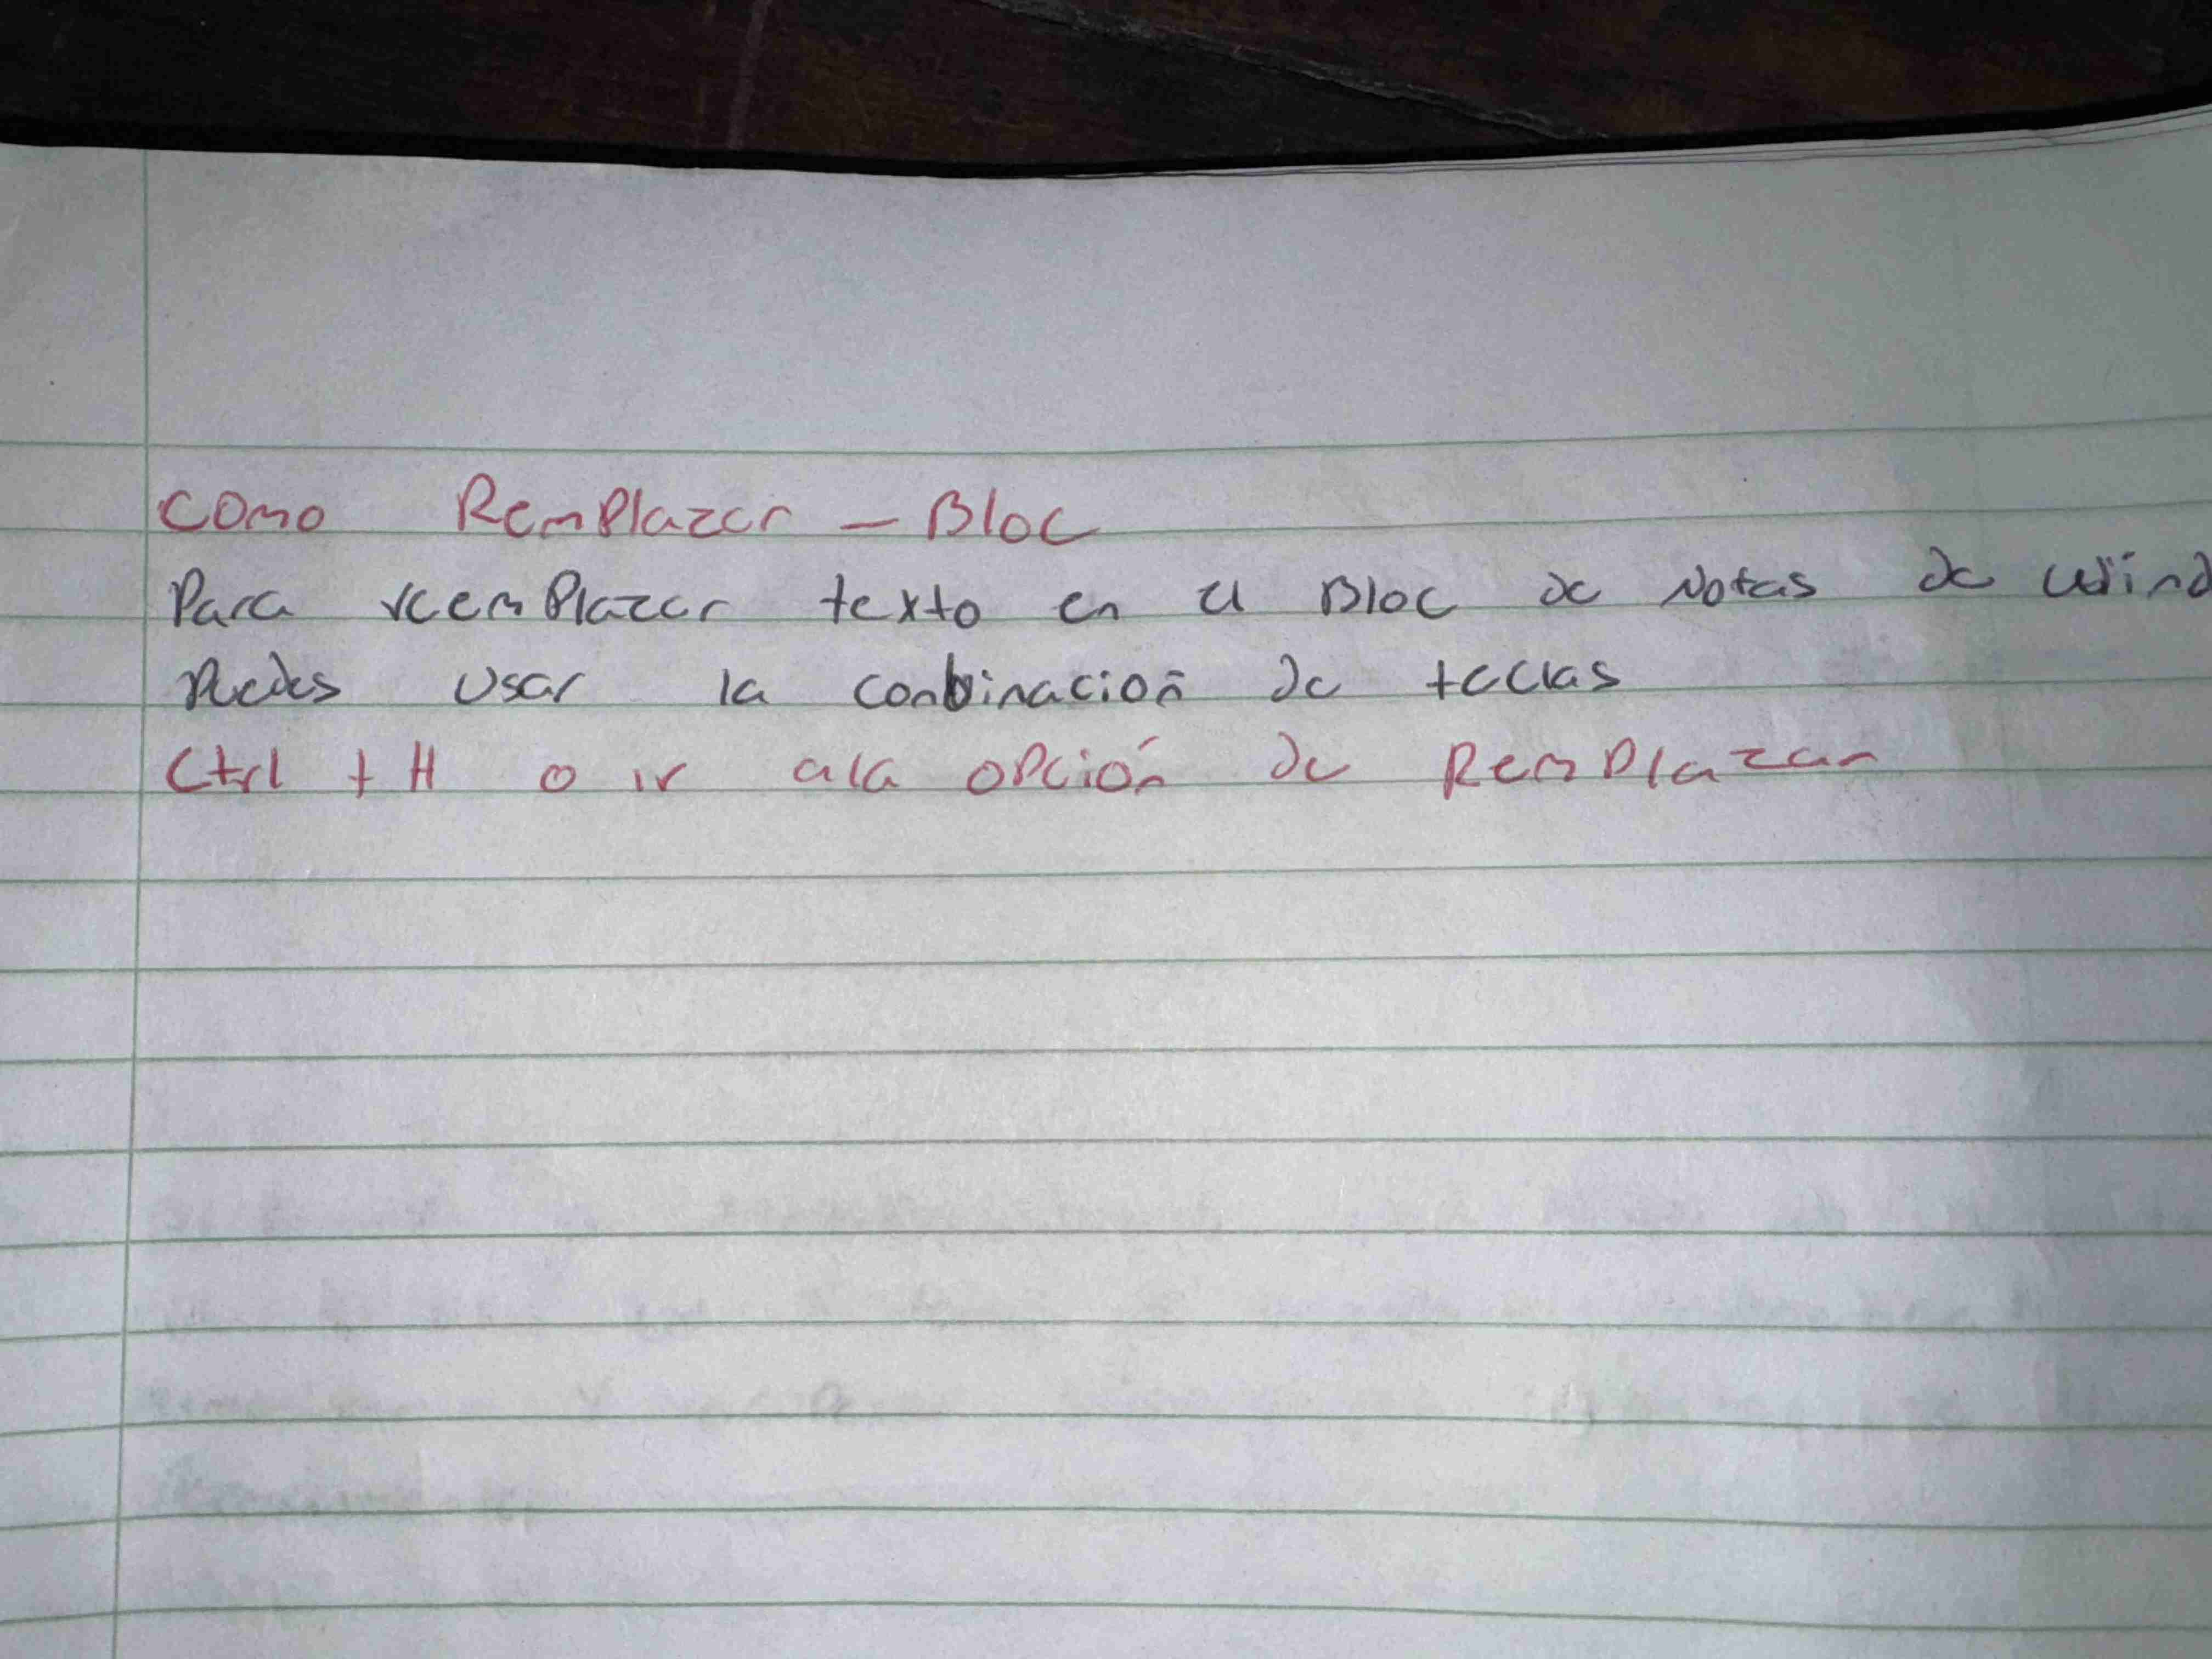 Como Remplazar - Bloc
Para reemplazar texto en el Bloc de Notas de Wind
Puedes usar la conbinación de teclas
Ctrl + H o ir ala opción de Remplazar